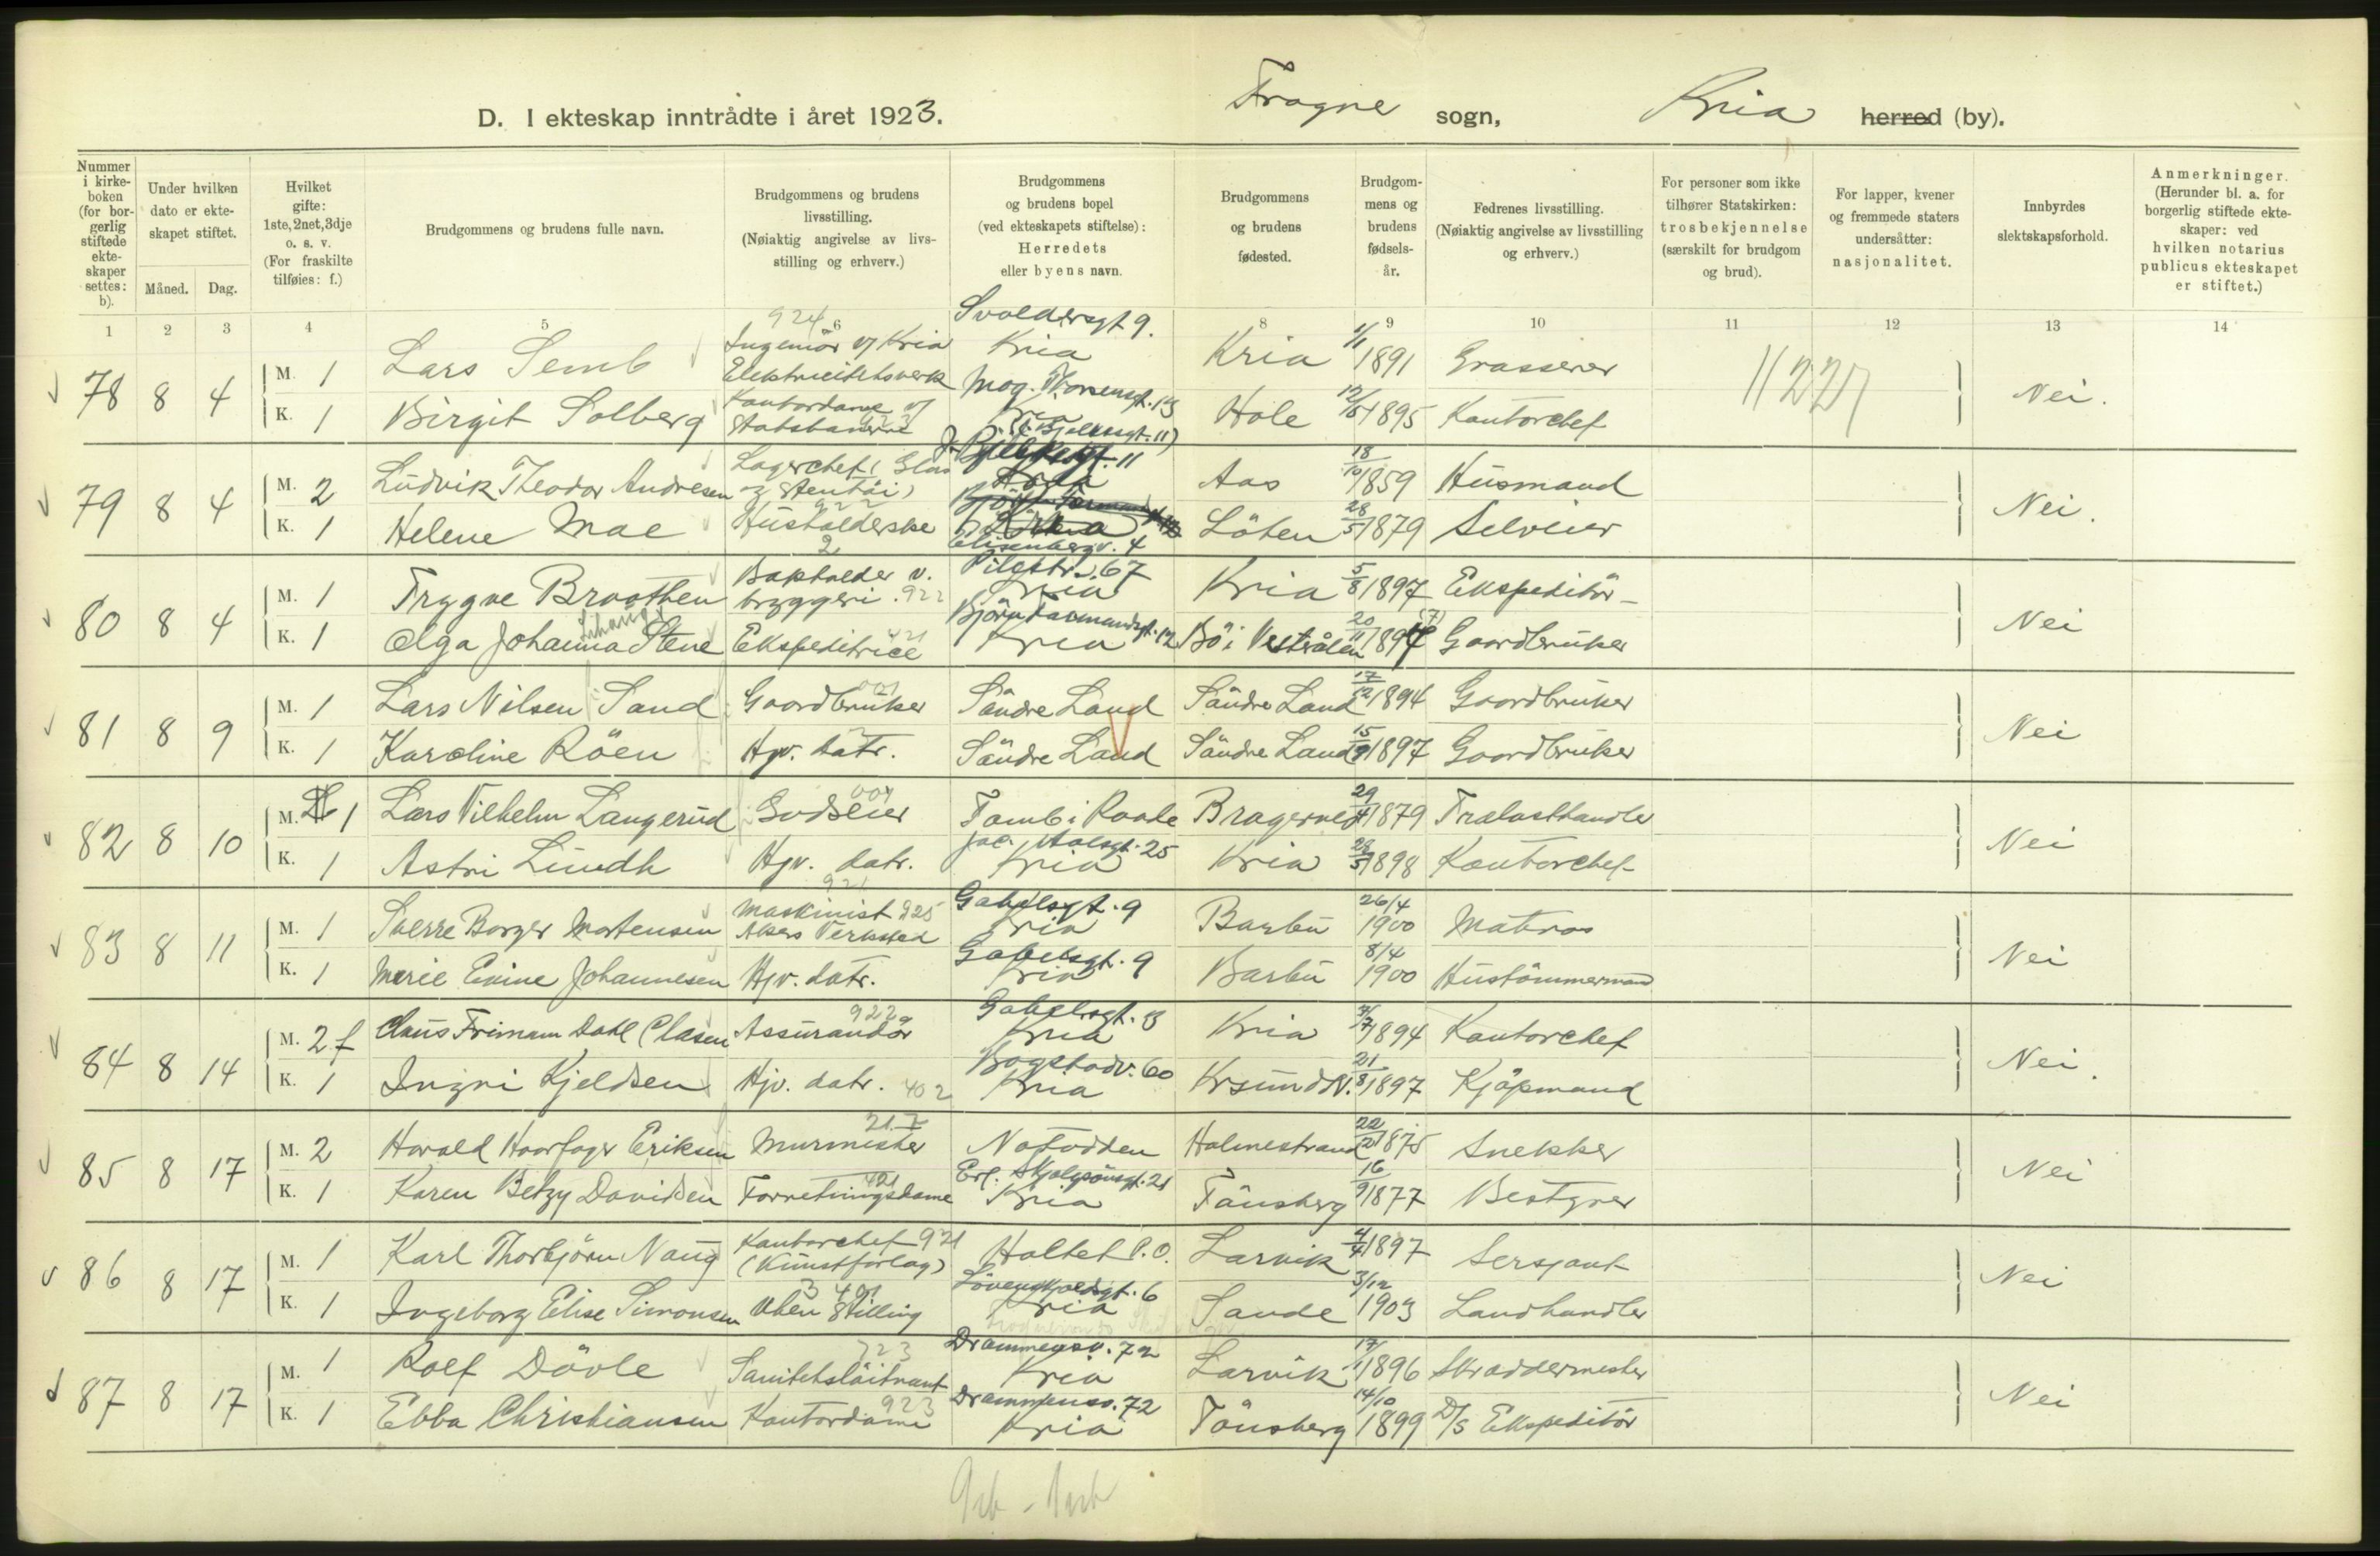 D. I ekteskap inntrådte i året 1923. Frogne sogn, Kria herred (by).
Nummer i kirkeboken (for borgerlig stiftede ekteskaper settes: b).
Under hvilken dato er ekteskapet stiftet.
Måned. Dag.
Hvilket gifte: 1ste, 2net, 3dje o. s. v. (For fraskilte tilføies: f.)
Brudgommens og brudens fulle navn.
Brudgommens og brudens livsstilling. (Nøiaktig angivelse av livsstilling og erhverv.)
Brudgommens og brudens bopel (ved ekteskapets stiftelse): Herredets eller byens navn.
Brudgommens og brudens fødested.
Brudgommens og brudens fødselsår.
Fedrenes livsstilling. (Nøiaktig angivelse av livsstilling og erhverv.)
For personer som ikke tilhører Statskirken: trosbekjennelse (særskilt for brudgom og brud).
For lapper, kvener og fremmede staters undersåtter: nasjonalitet.
Innbyrdes slektskapsforhold.
Anmerkninger. (Herunder bl. a. for borgerlig stiftede ekteskaper: ved hvilken notarius publicus ekteskapet er stiftet.)
1 2 3 4 5 6 8 9 10 11 12 13 14
78 8 4 M. 1 Lars Semb 924 Ingeniör v/ Kria Elektricitetsverk Svoldersgt 9. Kria Kria 1/1 1891 Grosserer Nei.
K. 1 Birgit Solberg Kontordame v/ Statsbanerne Mog. Thorsensgt. 13 Kria Hole 1895 Kontorchef
79 8 4 M. 2 Ludvik Theodor Andresen Lagerchef (Glas og Stentöi) 11 Aas 18/10 1859 Husmand Nei.
K. 1 Helene Moe 922 Husholderske Elisenbergv. 4 Löten 28/5 1879 Selveier
80 8 4 M. 1 Trygve Broothen Bokholder v. bryggeri. 922 Pilestr. 67 Kria Kria 5/8 1897 Ekspeditör Nei
K. 1 Olga Johanna Stene Ekspeditrice 421 Björn Farmandsgt. 12 Kria Bö i Vesterålen 20/11 1897 Gaardbruker
81 8 9 M. 1 Lars Nilsen Sand Gaardbruker 001 Söndre Land Söndre Land 17/12 1894 Gaardbruker Nei
K. 1 Karoline Röen Hjv. datr. Söndre Land Söndre Land 1897 Gaardbruker
82 8 10 M. 1 Lars Vilhelm Langerud Godseier 001 Tomb i Raade Bragernes 29/4 1879 Trælasthandler Nei
K. 1 Astri Lundh Hjv. datr. 921 Jac. Aalsgt. 25 Kria Kria 1898 Kontorchef
83 8 11 M. 1 Sverre Borger Mortensen Maskinist 225 Akers Verksted Gabelsgt. 9 Kria Barbu 26/4 1900 Matros Nei
K. 1 Marie Evine Johannesen Hjv. datr. Gabelsgt. 9 Kria Barbu 8/4 1900 Hustömmermand
84 8 14 M. 2 f Claus Frimann Dahl Clasen Assurandör 922 Gabelsgt. 8 Kria Kria 1894 Kontorchef Nei.
K. 1 Ingri Kjeldsen Hjv. datr. 402 Bogstadv. 60 Kria Krsund N. 21/8 1897 Kjöpmand
85 8 17 M. 2 Harald Haarfager Eriksen Murmester 217 Notodden Holmestrand 22/2 1875 Snekker Nei
K. 1 Karen Betzy Davidsen Forretningsdame 421 Erl. Skjalgsönsgt. 21 Kria Tönsberg 16/9 1877 Bestyrer
86 8 17 M. 1 Karl Thorbjörn Naug Kontorchef 921 (Kunstforlag) Holtet P.O. Larvik 4/4 1897 Sersjant Nei
K. 1 Ingeborg Elise Simonsen Uten Stilling Lövenskjoldsgt. 6 Kria Sande 3/12 1903 Landhandler
87 8 17 M. 1 Rolf Dövle Sanitetslöitnant 723 Drammensv. 72 Kria Larvik 17/1 1896 Skreddermester Nei
K. 1 Ebba Christiansen Kontordame 923 Drammensv. 72 Kria Tönsberg 14/10 1899 D/S Ekspeditör